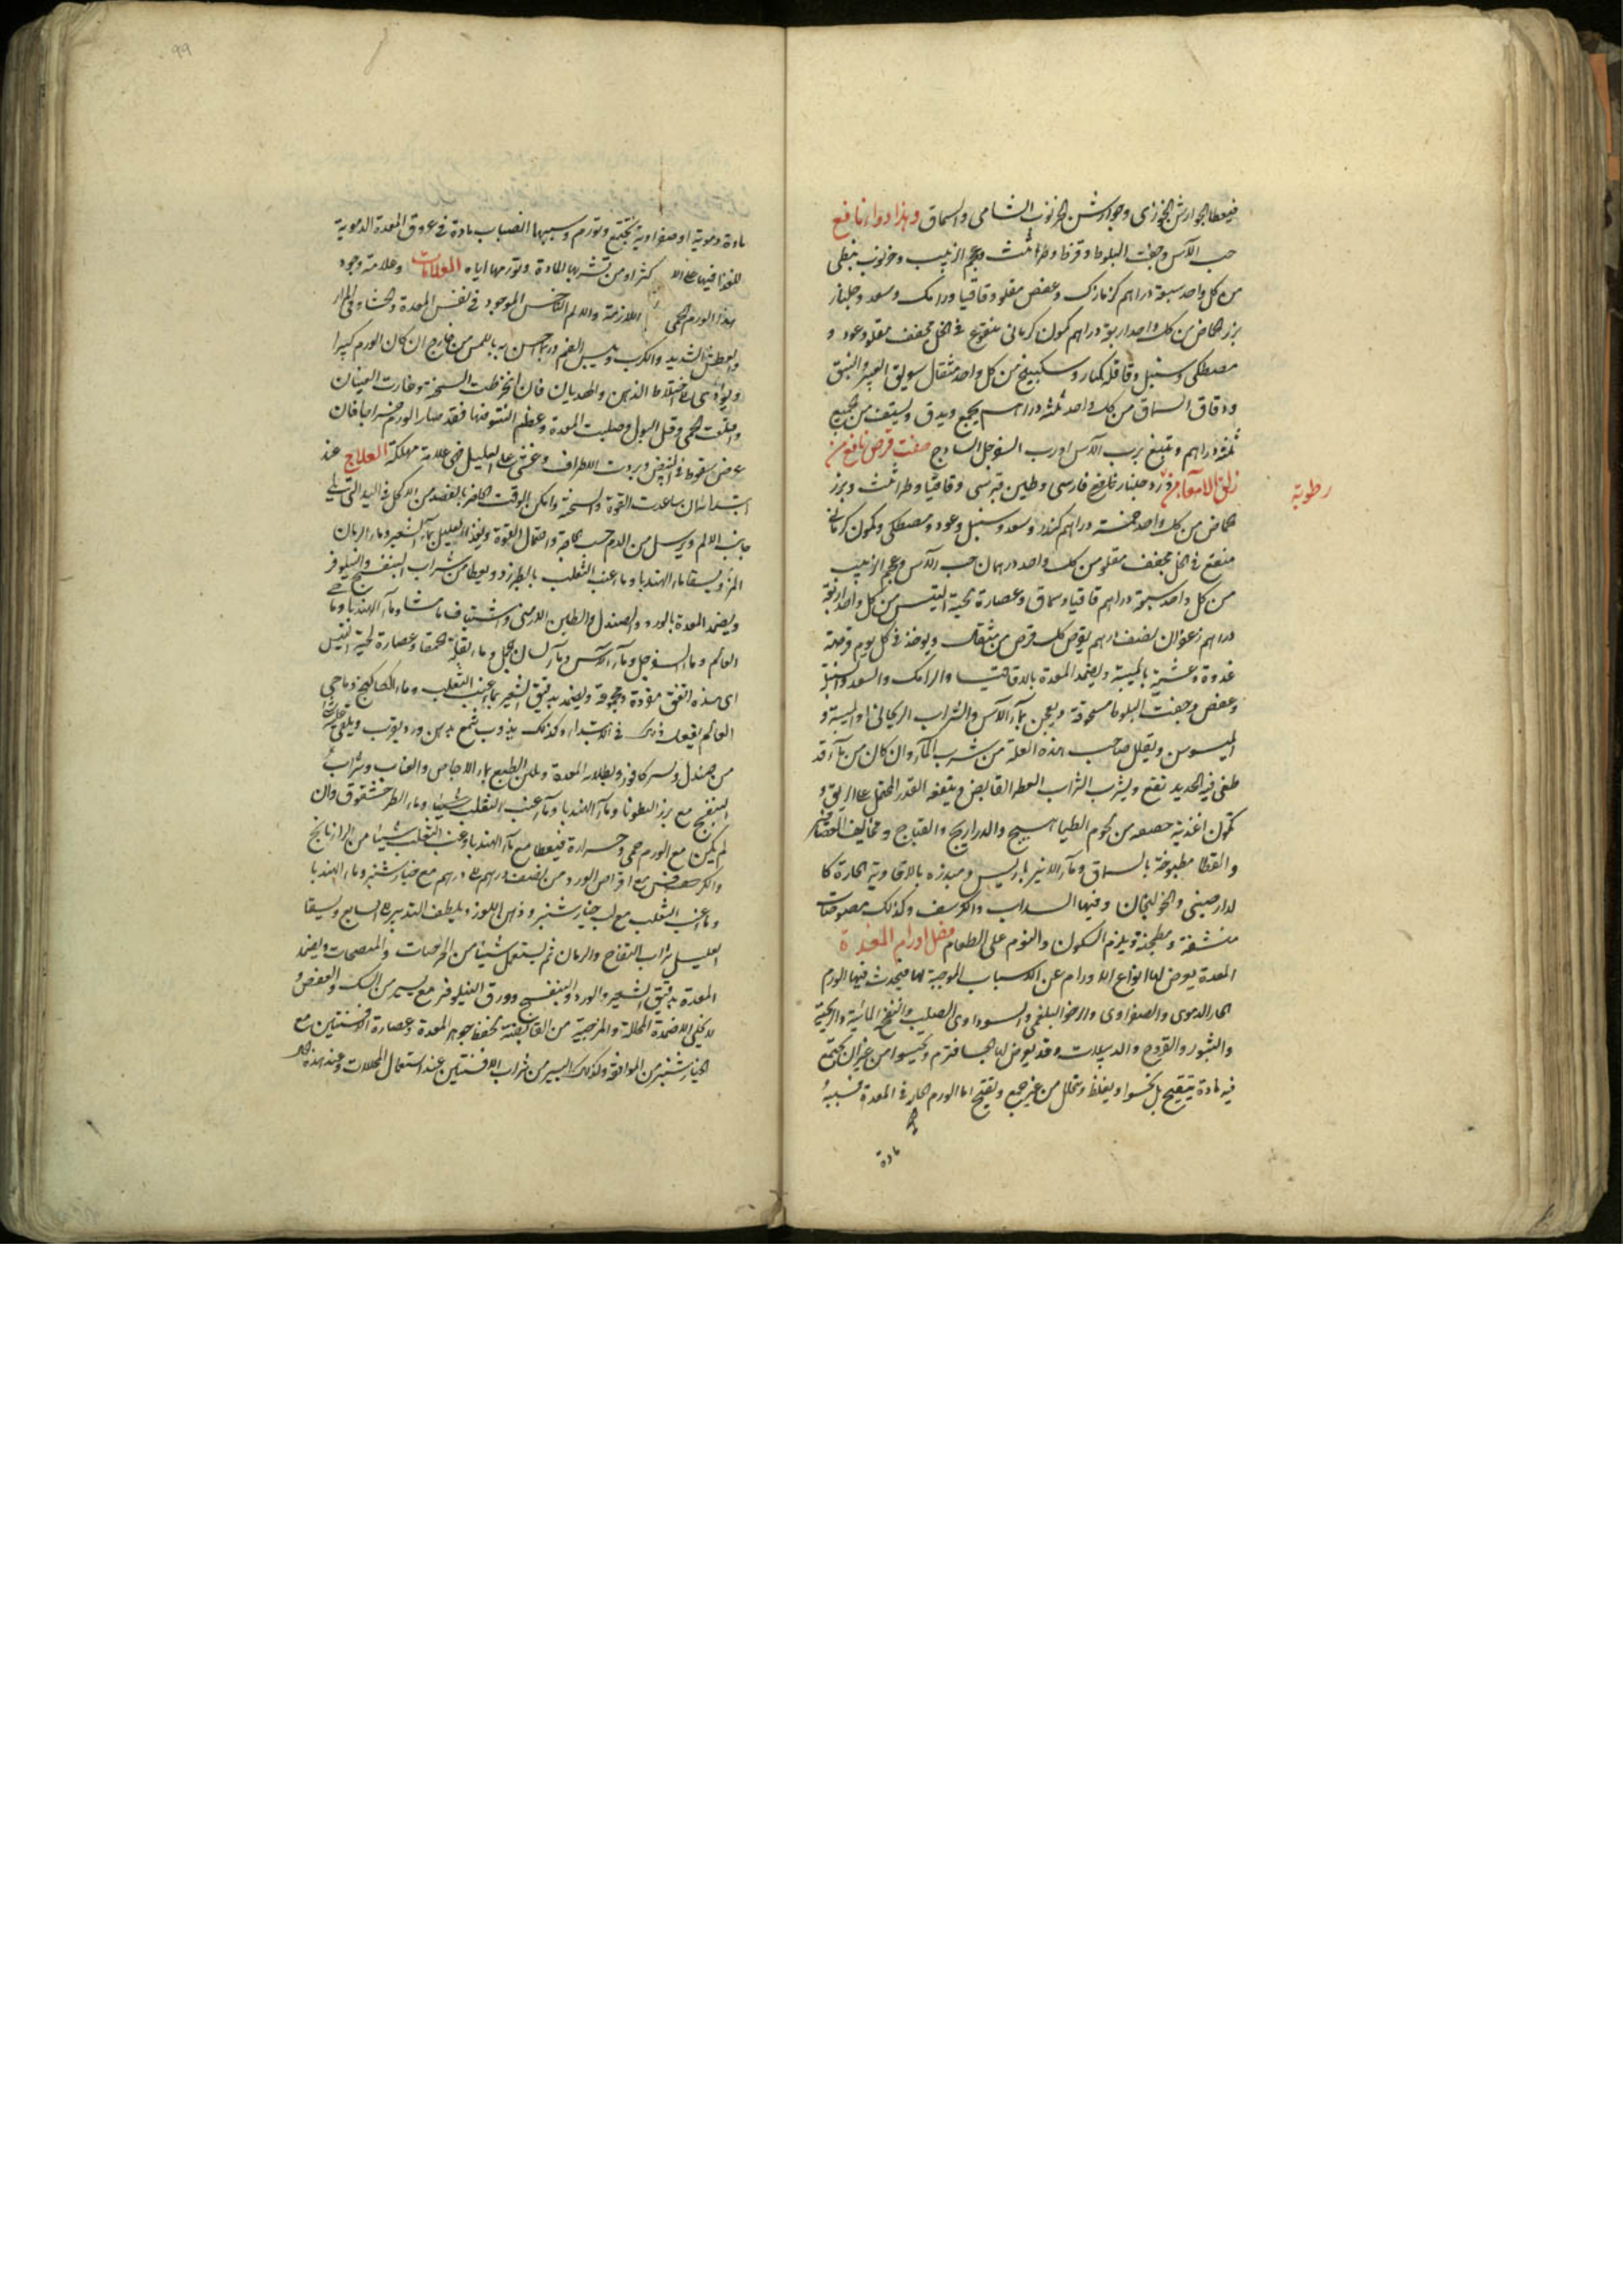 فيعطا الجوارش الخوزى وجوارشن الخرنوب الشامى والسماق وهذا دواء نافع
حب الآس وجفت البلوط وقرظ وطراثيث وعجم الزبيب وخرنوب نبطى
من كل واحد سبعة دراهم كزمازك وعفص مقلو وقاقيا ورامك وسعد وجلنار
بزر حماض من كل واحد اربعة دراهم كمون كرمانى منقوع فى الخل مجفف مقلو وعود و
مصطكى وسنبل وقاقله كبار وسكبينج من كل واحد مثقال سويق الغبيرا والنبق
ودقاق السماق من كل واحد ثلثه دراهم يجمع ويدق ويستف من الجميع
ثلثة دراهم وتتبع برب الآس او رب السفرجل الساذج صفت قرص نافع من
زلق الامعا ورد وجلنار فارسى وطين قبرسى وقاقيا وطراثيث وبزر
رطوبة
حماض من كل واحد خمسة دراهم كندر وسعد وسنبل وعود ومصطكى وكمون كرمانى
منقع فى الخل مجفف مقلو من كل واحد درهمان حب الآس وعجم الزبيب
من كل واحد سبعة دراهم قاقيا وسماق وعصارة لحية التيس من كل واحد اربعة
دراهم زعفران نصف درهم يقرص كل قرص من مثقال ويوخذ فى كل يوم قرصة
غدوة وعشية بالميبة ويضمد المعدة بالاقاقيا والرامك والسعد والسنبل
وعفص وجفت البلوط مسحوقة ويعجن بماء الآس والشراب الريحانى او الميبة و
الميسوس ويقلل صاحب هذه العلة من شرب الماء وان كان من ماء قد
طفى فيه الحديد نفع ويشرب الشراب العطر القابض وينفعه القدر المحتمل على الريق و
تكون اغذيته من لحوم الطياهيج والدراريج والقباج ومخاليف العصافير
والقطا مطبوخة بالسماق وماء الانبرباريس ومبزره بالافاوية الحارة كا
لدارصينى والخولنجان وفيها السداب والكرفس وكذلك مصوصات
منشفة ومطجنة ويلزم السكون والنوم على الطعام فصل اورام المعدة
المعدة يعرض لها انواع الاورام عن الاسباب الموجبة لها فيحدث فيها الورم
الحار الدموى والصفراوى والرخو البلغمى والسوداوى الصليب والنفخ المائية والريحية
والبثور والقروح والدبيلات وقد يعرض لها فترم من غير ان يجتمع
فيه مادة يتقيح بل او يغلظ ويتحلل من غير جمع وتقيح اما الورم الحار فى المعدة فسببه
مادة
99
مادة دموية او صفراوية تجتمع وتورم وسببها انصباب مادة فى عروق المعدة الدموية
للغذا فيها على الا كثر او من تشربها المادة وتورمها اياه العلامات وعلامة وجود
هذا الورم الحمى اللازمة والالم الناخس الموجود فى نفس المعدة والجشاء فى المرار
والعطش الشديد والكرب ويبس الفم وربما احس به باللمس من خارج ان كان الورم كبيرا
ويؤدى الى اختلاط الذهن والهذيان فان انخرطت السحنة وغارت العينان
واقلعت الحمى وقل البول وصلبت المعدة وعظم النتو منها فقد صار الورم خراجا فان
عرض سقوط فى النبض وبردت الاطراف وغشى على العليل فهى علامة مهلكة العلاج عند
ابتدائه ان ساعدت القوة والسحنة وامكن الوقت الحاضر بالفصد من الاكحل فى اليد التى تلى
جانب الالم ويرسل من الدم حسب الحاجة واحتمال القوة ويغذا العليل بماء الشعير وماء الرمان
المز ويسقا ماء الهندبا وماء عنب الثعلب بالطبرزد ويعطا من شراب البنفسج والنيلوفر
ويضمد المعدة بالورد والصندل والطين الارمنى واشياف ماميثا وماء الهندبا وما حى
العالم وما السفرجل وماء الآس وماء لسان الحمل وماء بقلة الحمقا وعصارة لحية التيس
اى هذه اتفق مفردة ومجموعة ويضمد بدقيق الشعير بماء عنب الثعلب وماء الكاكنج وما حى
العالم يفعل ذلك فى الابتداء وكذلك يذوب شمع بدهن ورد ويضرب ويلقى عليه شيا
من صندل ويسير كافور ويطلا به المعدة وملين الطبع بماء الاجاص والعناب وشراب
البنفسج مع بزر القطونا وماء الهندبا وماء عنب الثعلب شيئا وماء الطرخشقوق وان
لم يكن مع الورم حمى وحرارة فيعطا مع ماء الهندبا وعنب الثعلب شيئا من الرازيانج
والكرفس مع اقراص الورد من نصف درهم الى درهم مع خيارشنبر وماء الهندبا
وماء عنب الثعلب مع لب خيارشنبر ودهن اللوز ويلطف التدبير الى السابع ويسقا
العليل شراب التفاح والرمان ثم يستعمل شيئا من المرخيات والمنضجات ويضمد
المعدة بدقيق الشعير والورد والبنفسج وورق النيلوفر مع يسير من السك والعفص و
لا يخلى الاضمدة المحللة والمرخية من القابضة تحفظ جوهر المعدة وعصارة الافسنتين مع
الخيارشنبر من الموافقة وكذلك اليسير من شراب الافسنتين عند استعمال المحللات وعند هذه